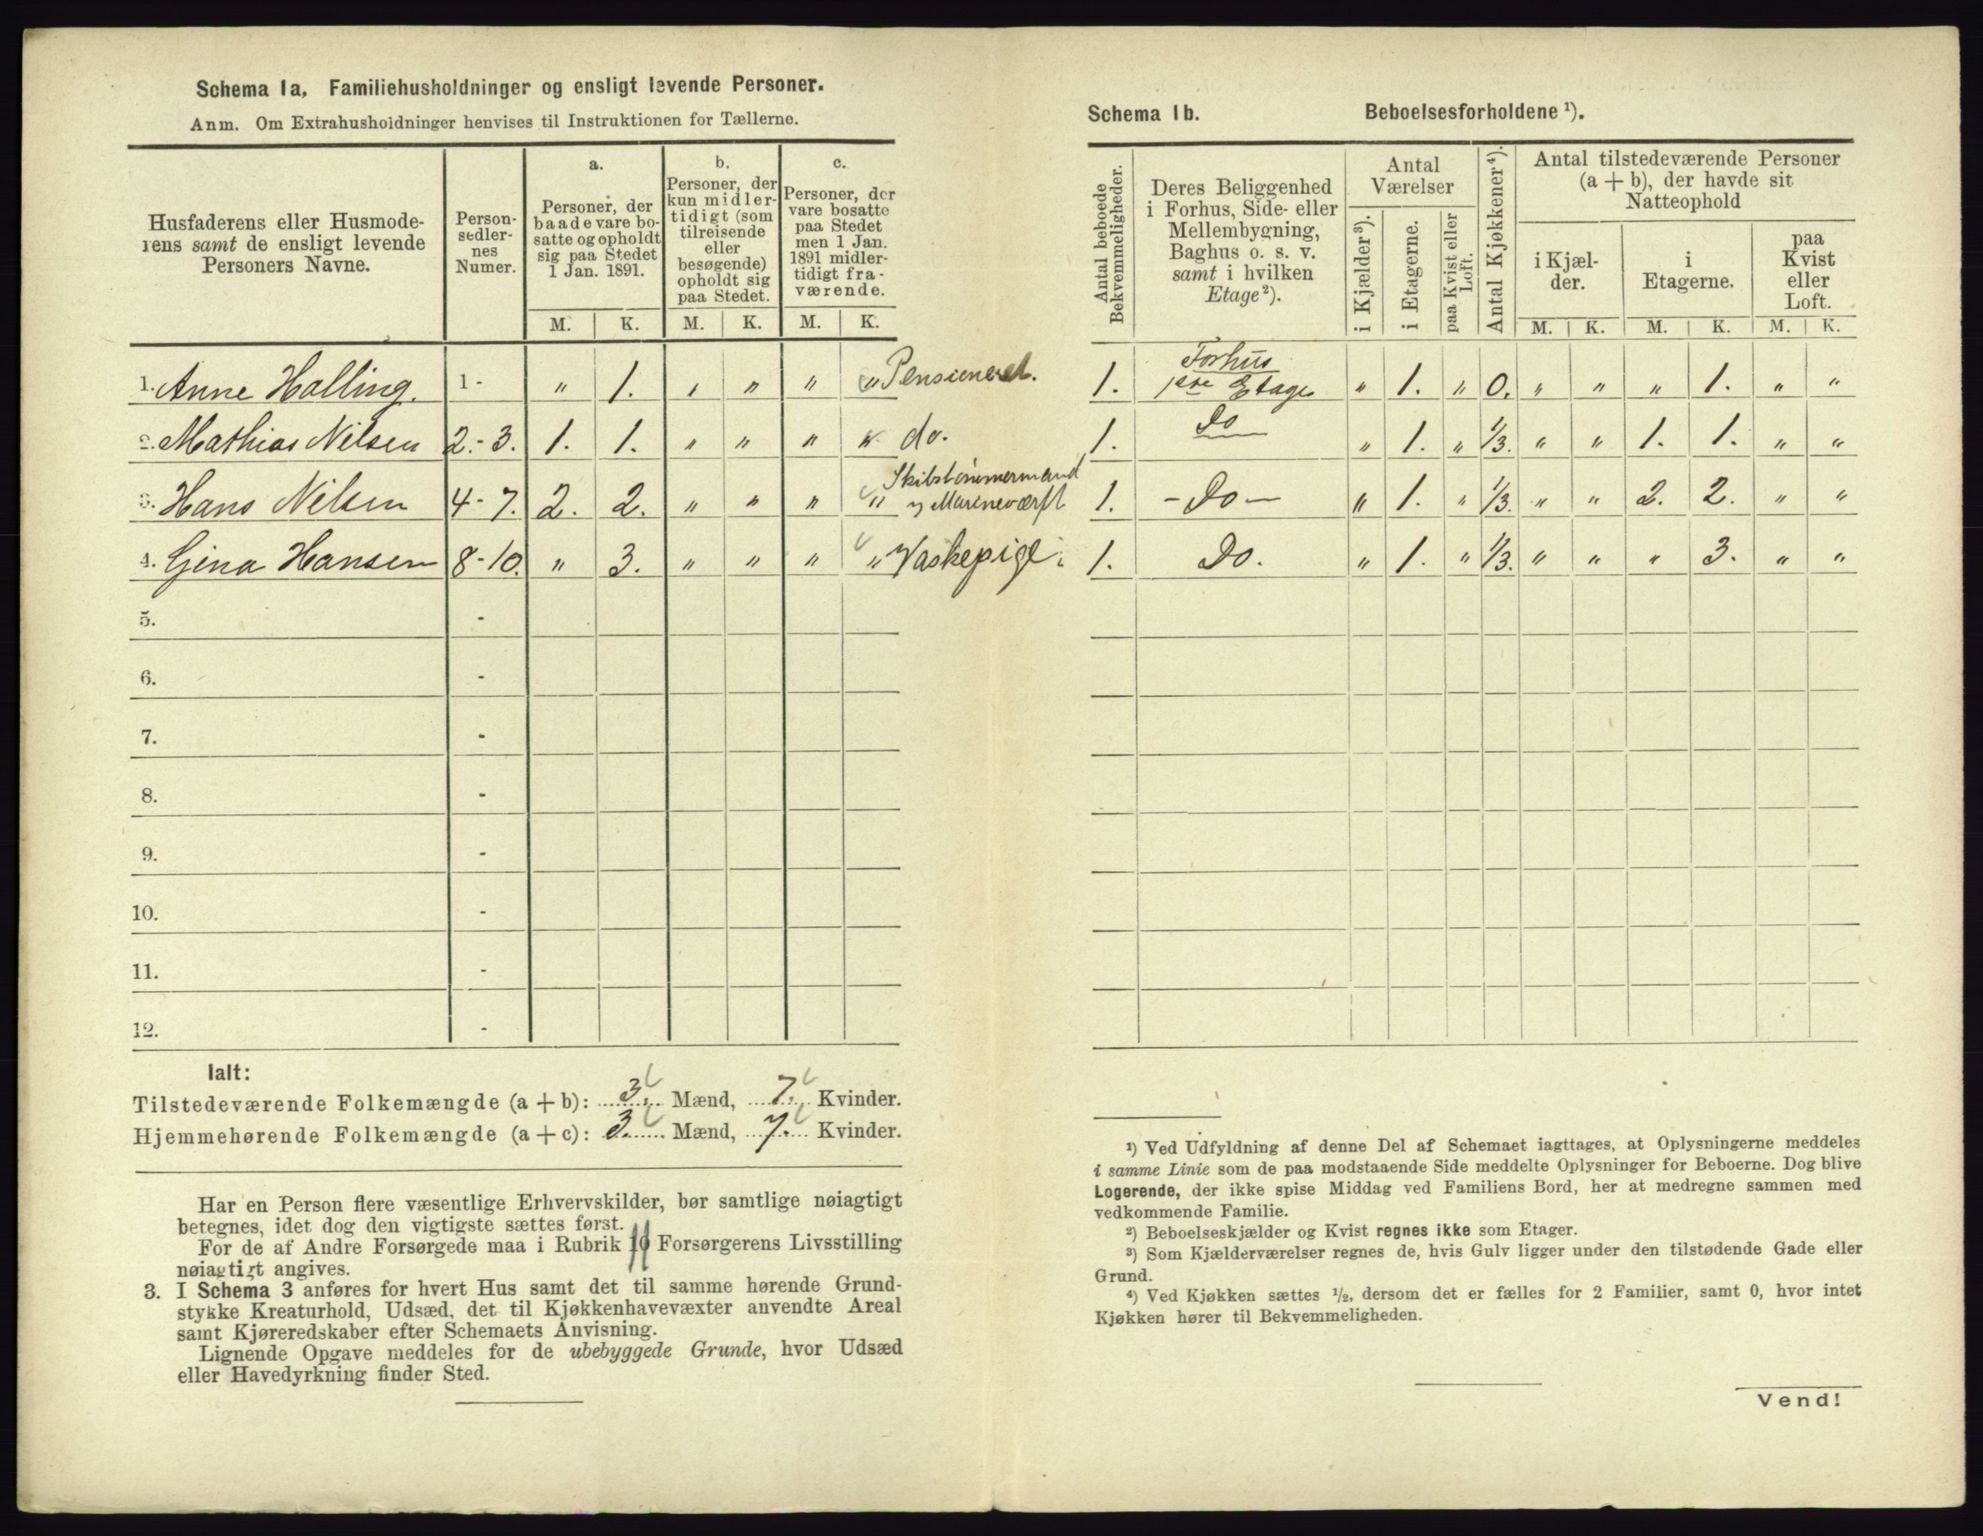 Schema 1a, Familiehusholdninger og ensligt levende Personer.
Anm. Om Extrahusholdninger henvises til Instruktionen for Tællerne.
Husfaderens eller Husmoderens samt de ensligt levende Personers Navne.
Personsedlernes Numer.
a. Personer, der baade vare bosatte og opholdt sig paa Stedet 1 Jan. 1891.
b. Personer, der kun midlertidigt (som tilreisende eller besøgende) opholdt sig paa Stedet.
c. Personer, der vare bosatte paa Stedet men 1 Jan. 1891 midlertidigt fraværende.
M. K. M. K. M. K.
1. Anne Halling. 1 - " 1. " " " " Pensioneret.
2. Mathias Nilsen 2. - 3. 1. 1. " " " " do.
3. Hans Nilsen 4 - 7. 2. 2. " " " " Skibstømmermand
v Marineværft
4. Gina Hansen 8 - 10. " 3. " " " " Vaskepige
5. -
6. -
7. -
8. -
9. -
10. -
11. -
12. -
Ialt:
Tilstedeværende Folkemængde (a + b): 3. Mænd, 7. Kvinder.
Hjemmehørende Folkemængde (a + c): 3. Mænd, 7. Kvinder.
Har en Person flere væsentlige Erhvervskilder, bør samtlige nøiagtigt
betegnes, idet dog den vigtigste sættes først.
For de af Andre Forsørgede maa i Rubrik 11 Forsørgerens Livsstilling
nøiagtigt angives.
3. I Schema 3 anføres for hvert Hus samt det til samme hørende Grund-
stykke Kreaturhold, Udsæd, det til Kjøkkenhavevæxter anvendte Areal
samt Kjøreredskaber efter Schemaets Anvisning.
Lignende Opgave meddeles for de ubebyggede Grunde, hvor Udsæd
eller Havedyrkning finder Sted.
Schema 1b. Beboelsesforholdene ¹).
Antal beboede Bekvemmeligheder.
Deres Beliggenhed i Forhus, Side- eller Mellembygning, Baghus o. s. v. samt i hvilken Etage ²).
Antal Værelser
i Kjælder ³).
i Etagerne.
paa Kvist eller Loft.
Antal Kjøkkener ⁴).
Antal tilstedeværende Personer (a + b), der havde sit Natteophold
i Kjælder.
i Etagerne.
paa Kvist eller Loft.
M. K. M. K. M. K.
1. Forhus
1ste Etage " 1. " 0. " " " 1. " "
1. Do " 1. " 1/3. " " 1. 1. " "
1. - Do - " 1. " 1/3. " " 2. 2. " "
1. Do. " 1. " 1/3. " " " 3. " "
¹) Ved Udfyldning af denne Del af Schemaet iagttages, at Oplysningerne meddeles
i samme Linie som de paa modstaaende Side meddelte Oplysninger for Beboerne. Dog blive
Logerende, der ikke spise Middag ved Familiens Bord, her at medregne sammen med
vedkommende Familie.
²) Beboelseskjælder og Kvist regnes ikke som Etager.
³) Som Kjælderværelser regnes de, hvis Gulv ligger under den tilstødende Gade eller
Grund.
⁴) Ved Kjøkken sættes ½, dersom det er fælles for 2 Familier, samt 0, hvor intet
Kjøkken hører til Bekvemmeligheden.
Vend!